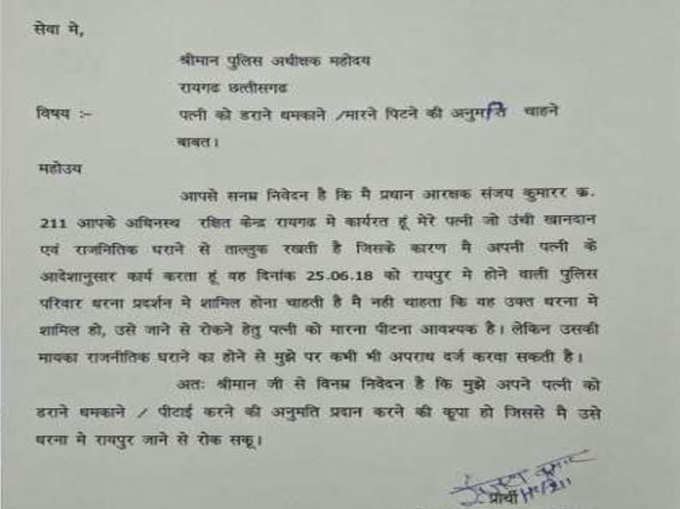 सेवा मे,
श्रीमान पुलिस अधीक्षक महोदय
रायगढ छत्तीसगढ
विषय :- पत्नी को डराने धमकाने /मारने पिटने की अनुमति चाहने
बाबत।
महोउय
आपसे सनम्र निवेदन है कि मै प्रधान आरक्षक संजय कुमारर क्र.
211 आपके अधिनस्थ रक्षित केन्द्र रायगढ मे कार्यरत हूं मेरे पत्नी जो उंची खानदान
एवं राजनितिक घराने से ताल्लुक रखती है जिसके कारण मै अपनी पत्नी के
आदेशानुसार कार्य करता हूं वह दिनांक 25.06.18 को रायपुर मे होने वाली पुलिस
परिवार धरना प्रदर्शन मे शामिल होना चाहती है मै नही चाहता कि वह उक्त धरना मे
शामिल हो, उसे जाने से रोकने हेतु पत्नी को मारना पीटना आवश्यक है। लेकिन उसकी
मायका राजनीतिक घराने का होने से मुझे पर कभी भी अपराध दर्ज करवा सकती है।
अतः श्रीमान जी से विनम्र निवेदन है कि मुझे अपने पत्नी को
डराने धमकाने / पीटाई करने की अनुमति प्रदान करने की कृपा हो जिससे मै उसे
धरना मे रायपुर जाने से रोक सकू।
संजय कुमार
प्रार्थी HC/211